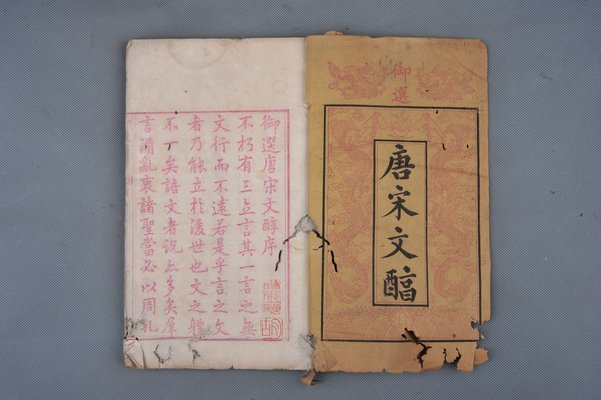 御選
唐宋文醕
御選唐宋文醇序
不朽有三立言其一言之無
文行而不遠若是乎言之文
者乃能立於後世也文之體
不一矣語文者說亦多矣羣
言淆亂衷諸聖當必以周孔